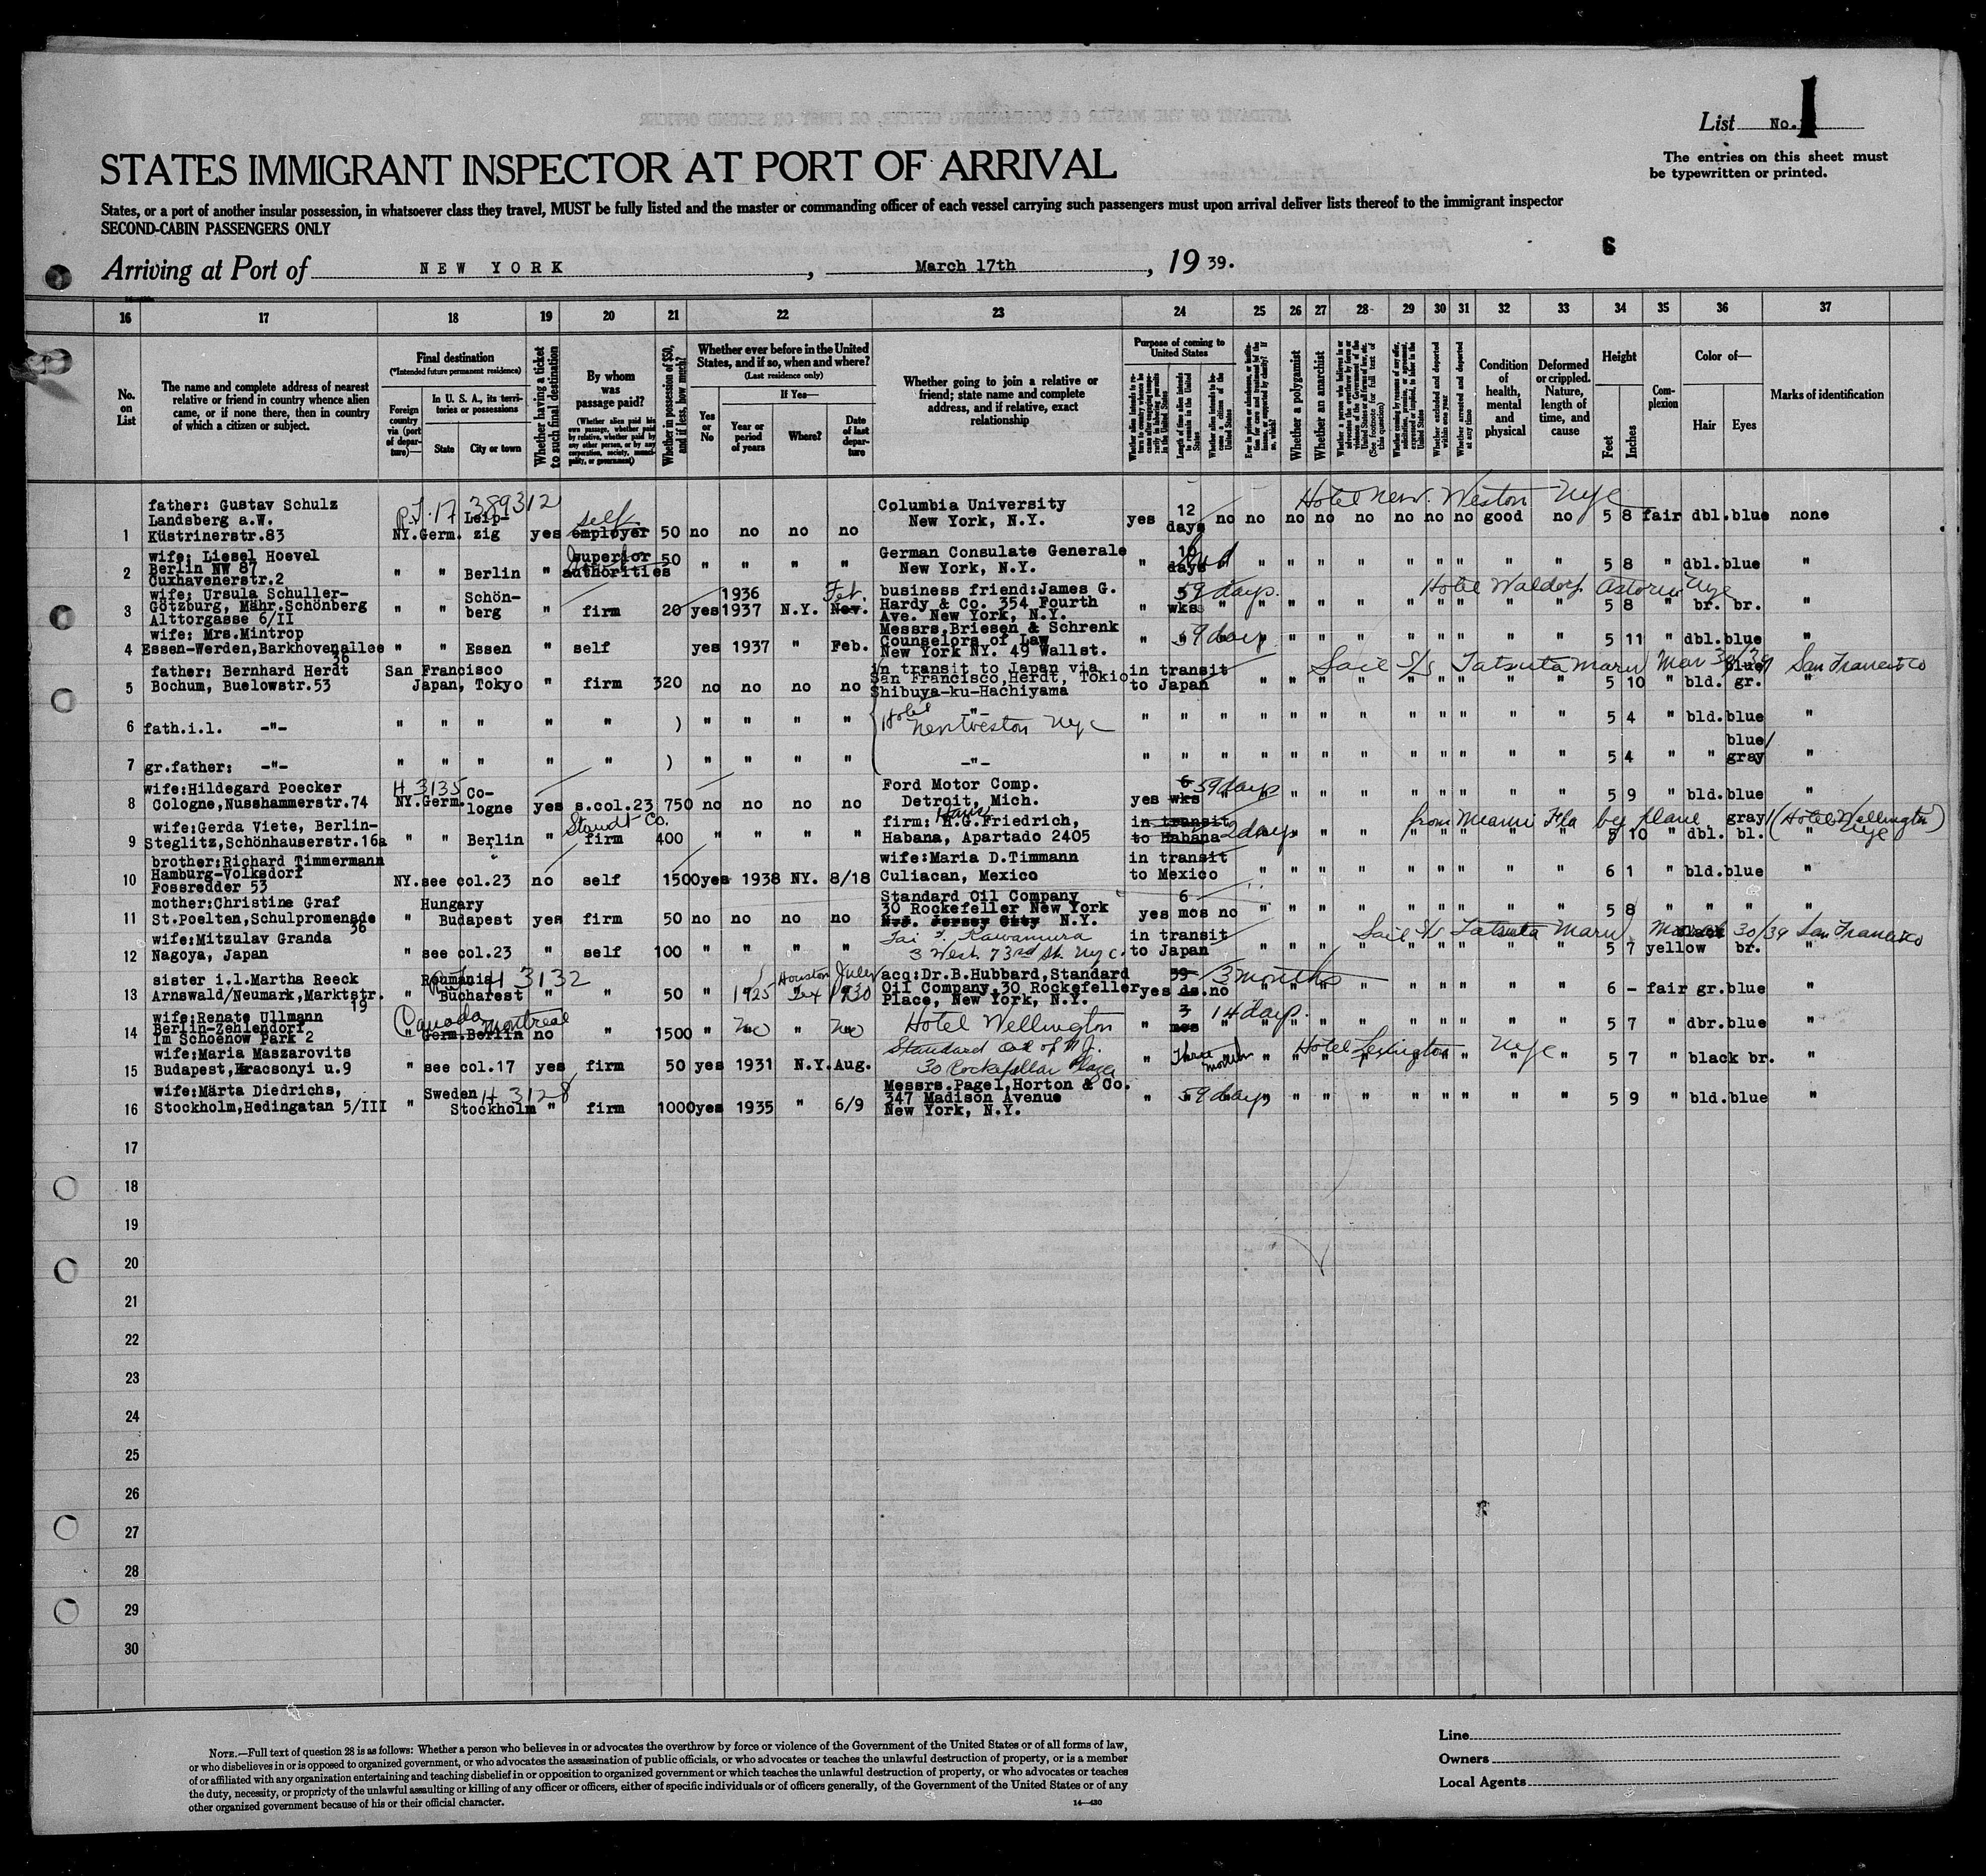 List No. 1
The entries on this sheet must
be typewritten or printed.
STATES IMMIGRANT INSPECTOR AT PORT OF ARRIVAL
States, or a port of another insular possession, in whatsoever class they travel, MUST be fully listed and the master or commanding officer of each vessel carrying such passengers must upon arrival deliver lists thereof to the immigrant inspector
SECOND-CABIN PASSENGERS ONLY
6
Arriving at Port of NEW YORK, March 17th, 19 39.
16 17 18 19 20 21 22 23 24 25 26 27 28 29 30 31 32 33 34 35 36 37
No. on List
The name and complete address of nearest
relative or friend in country whence alien
came, or if none there, then in country
of which a citizen or subject.
Final destination
(*Intended future permanent residence)
Foreign country via (port of departure)—
In U. S. A., its territories or possessions
State
City or town
Whether having a ticket to such final destination
By whom was passage paid?
(Whether alien paid his own passage, whether paid by relative, whether paid by any other person, or by any corporation, society, municipality, or government)
Whether in possession of $50, and if less, how much?
Whether ever before in the United
States, and if so, when and where?
(Last residence only)
Yes or No
If Yes—
Year or period of years
Where?
Date of last departure
Whether going to join a relative or
friend; state name and complete
address, and if relative, exact
relationship
Purpose of coming to United States
Whether a polygamist
Whether an anarchist
Condition of health, mental and physical
Deformed or crippled. Nature, length of time, and cause
Height
Feet
Inches
Complexion
Color of—
Hair
Eyes
Marks of identification
Hotel New Weston Nyc
1 father: Gustav Schulz
Landsberg a.W.
Küstrinerstr.83
389312
NY. Germ. Leipzig yes self employer 50 no no no no
Columbia University
New York, N.Y.
yes 12 days no no no no no no no no good no 5 8 fair dbl. blue none
2 wife: Liesel Hoevel
Berlin NW 87
Cuxhavenerstr.2
" " Berlin " superior authorities 50 " " " "
German Consulate Generale
New York, N.Y.
" 10 days " " " " " " " " " " 5 8 " dbl. blue "
3 wife: Ursula Schuller-
Götzburg, Mähr.Schönberg
Alttorgasse 6/II
" " Schönberg " firm 20 yes 1936 1937 N.Y. Feb. Nov.
business friend: James G.
Hardy & Co. 354 Fourth
Ave. New York, N.Y.
" 59 days wks " " " " " " " " " " 5 8 " br. br. "
Hotel Waldorf Astoria Nyc
4 wife: Mrs.Mintrop
Essen-Werden, Barkhovenallee
36
" " Essen " self yes 1937 " Feb.
Messrs.Briesen & Schrenk
Counselors of Law
New York NY. 49 Wallst.
" 59 days " " " " " " " " " 5 11 " dbl. blue "
5 father: Bernhard Herdt
Bochum, Buelowstr.53
San Francisco
Japan, Tokyo " firm 320 no no no no
in transit to Japan via
San Francisco, Herdt, Tokio
Shibuya-ku-Hachiyama
in transit
to Japan
" " " " " " " " " 5 10 " bld. blue gr. "
Sail S/S Tatsuta Maru Mar 30/39 San Francisco
6 fath.i.l. -"-
" " " " " ) " " " "
-"-
Hotel New Weston Nyc
" " " " " " " " " " " " 5 4 " bld. blue "
7 gr.father: -"-
" " " " " ) " " " "
-"-
" " " " " " " " " " " " 5 4 " " blue/gray "
8 wife: Hildegard Poecker
Cologne, Nusshammerstr.74
H 3135
NY. Germ. Cologne yes s.col.23 750 no no no no
Ford Motor Comp.
Detroit, Mich.
yes 6 wks 59 days " " " " " " " " " " 5 9 " bld. blue "
9 wife: Gerda Viete, Berlin-
Steglitz, Schönhauserstr.16a
" " Berlin " Staudt Co. firm 400 " " " "
firm: H.G.Friedrich,
Habana, Apartado 2405
in transit
to Habana
2 days " " " 5 10 " dbl. gray/ bl. "
from Miami Fla by plane (Hotel Wellington Nyc)
10 brother: Richard Timmermann
Hamburg-Volksdorf
Fossredder 53
NY. see col.23 no self 1500 yes 1938 NY. 8/18
wife: Maria D.Timmann
Culiacan, Mexico
in transit
to Mexico
" " " " " " " " " 6 1 " bld. blue "
11 mother: Christine Graf
St.Poelten, Schulpromenade
36
" Hungary
Budapest yes firm 50 no no no no
Standard Oil Company
30 Rockefeller New York
N.J. Jersey City N.Y.
yes 6 mos no " " " " " " " " " 5 8 " " " "
12 wife: Mitzulav Granda
Nagoya, Japan
" see col.23 " self 100 " " " "
Kawamura
3 West 73rd St. Nyc.
in transit
to Japan
" " " " " " " " " 5 7 yellow br. "
Sail S/S Tatsuta Maru March 30/39 San Francisco
13 sister i.l. Martha Reeck
Arnswald/Neumark, Marktstr.
19
" Roumania
Bucharest H 3132 " " 50 " 1925 Houston Tex July 1930
acq: Dr.B.Hubbard, Standard
Oil Company, 30 Rockefeller
Place, New York, N.Y.
yes 59 ds. no 3 months " " " " " " " " " 6 - fair gr. blue "
14 wife: Renate Ullmann
Berlin-Zehlendorf
Im Schoenow Park 2
Canada Montreal
" Germ. Berlin no " 1500 " no " no
Hotel Wellington
" 3 mos 14 days. " " " " " " " " " 5 7 " dbr. blue "
15 wife: Maria Maszarovits
Budapest, Kracsonyi u.9
" see col.17 yes firm 50 yes 1931 N.Y. Aug.
Standard Oil of N.J.
30 Rockefellar Plaza
" Three months " " " " " " " " " 5 7 " black br. "
Hotel Lexington Nyc
16 wife: Märta Diedrichs,
Stockholm, Hedingatan 5/III
" Sweden H 3128
Stockholm " firm 1000 yes 1935 " 6/9
Messrs.Pagel, Horton & Co.
347 Madison Avenue
New York, N.Y.
" 59 days " " " " " " " " " 5 9 " bld. blue "
17
18
19
20
21
22
23
24
25
26
27
28
29
30
NOTE.—Full text of question 28 is as follows: Whether a person who believes in or advocates the overthrow by force or violence of the Government of the United States or of all forms of law,
or who disbelieves in or is opposed to organized government, or who advocates the assassination of public officials, or who advocates or teaches the unlawful destruction of property, or is a member
of or affiliated with any organization entertaining and teaching disbelief in or opposition to organized government or which teaches the unlawful destruction of property, or who advocates or teaches
the duty, necessity, or propriety of the unlawful assaulting or killing of any officer or officers, either of specific individuals or of officers generally, of the Government of the United States or of any
other organized government because of his or their official character.
14—430
Line
Owners
Local Agents